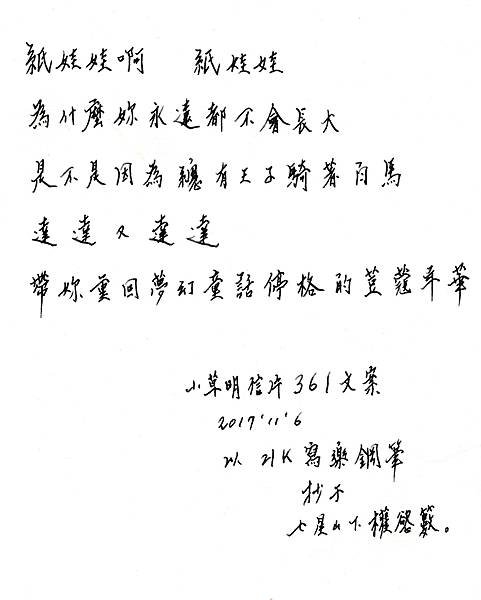 紙娃娃啊 紙娃娃
為什麼妳永遠都不會長大
是不是因為總有王子騎著白馬
達達又達達
帶妳重回夢幻童話停格的荳蔻年華
小草明信片361文案
2017'11'6
以 21K 寫樂鋼筆
抄于
七星山下權啓簌。